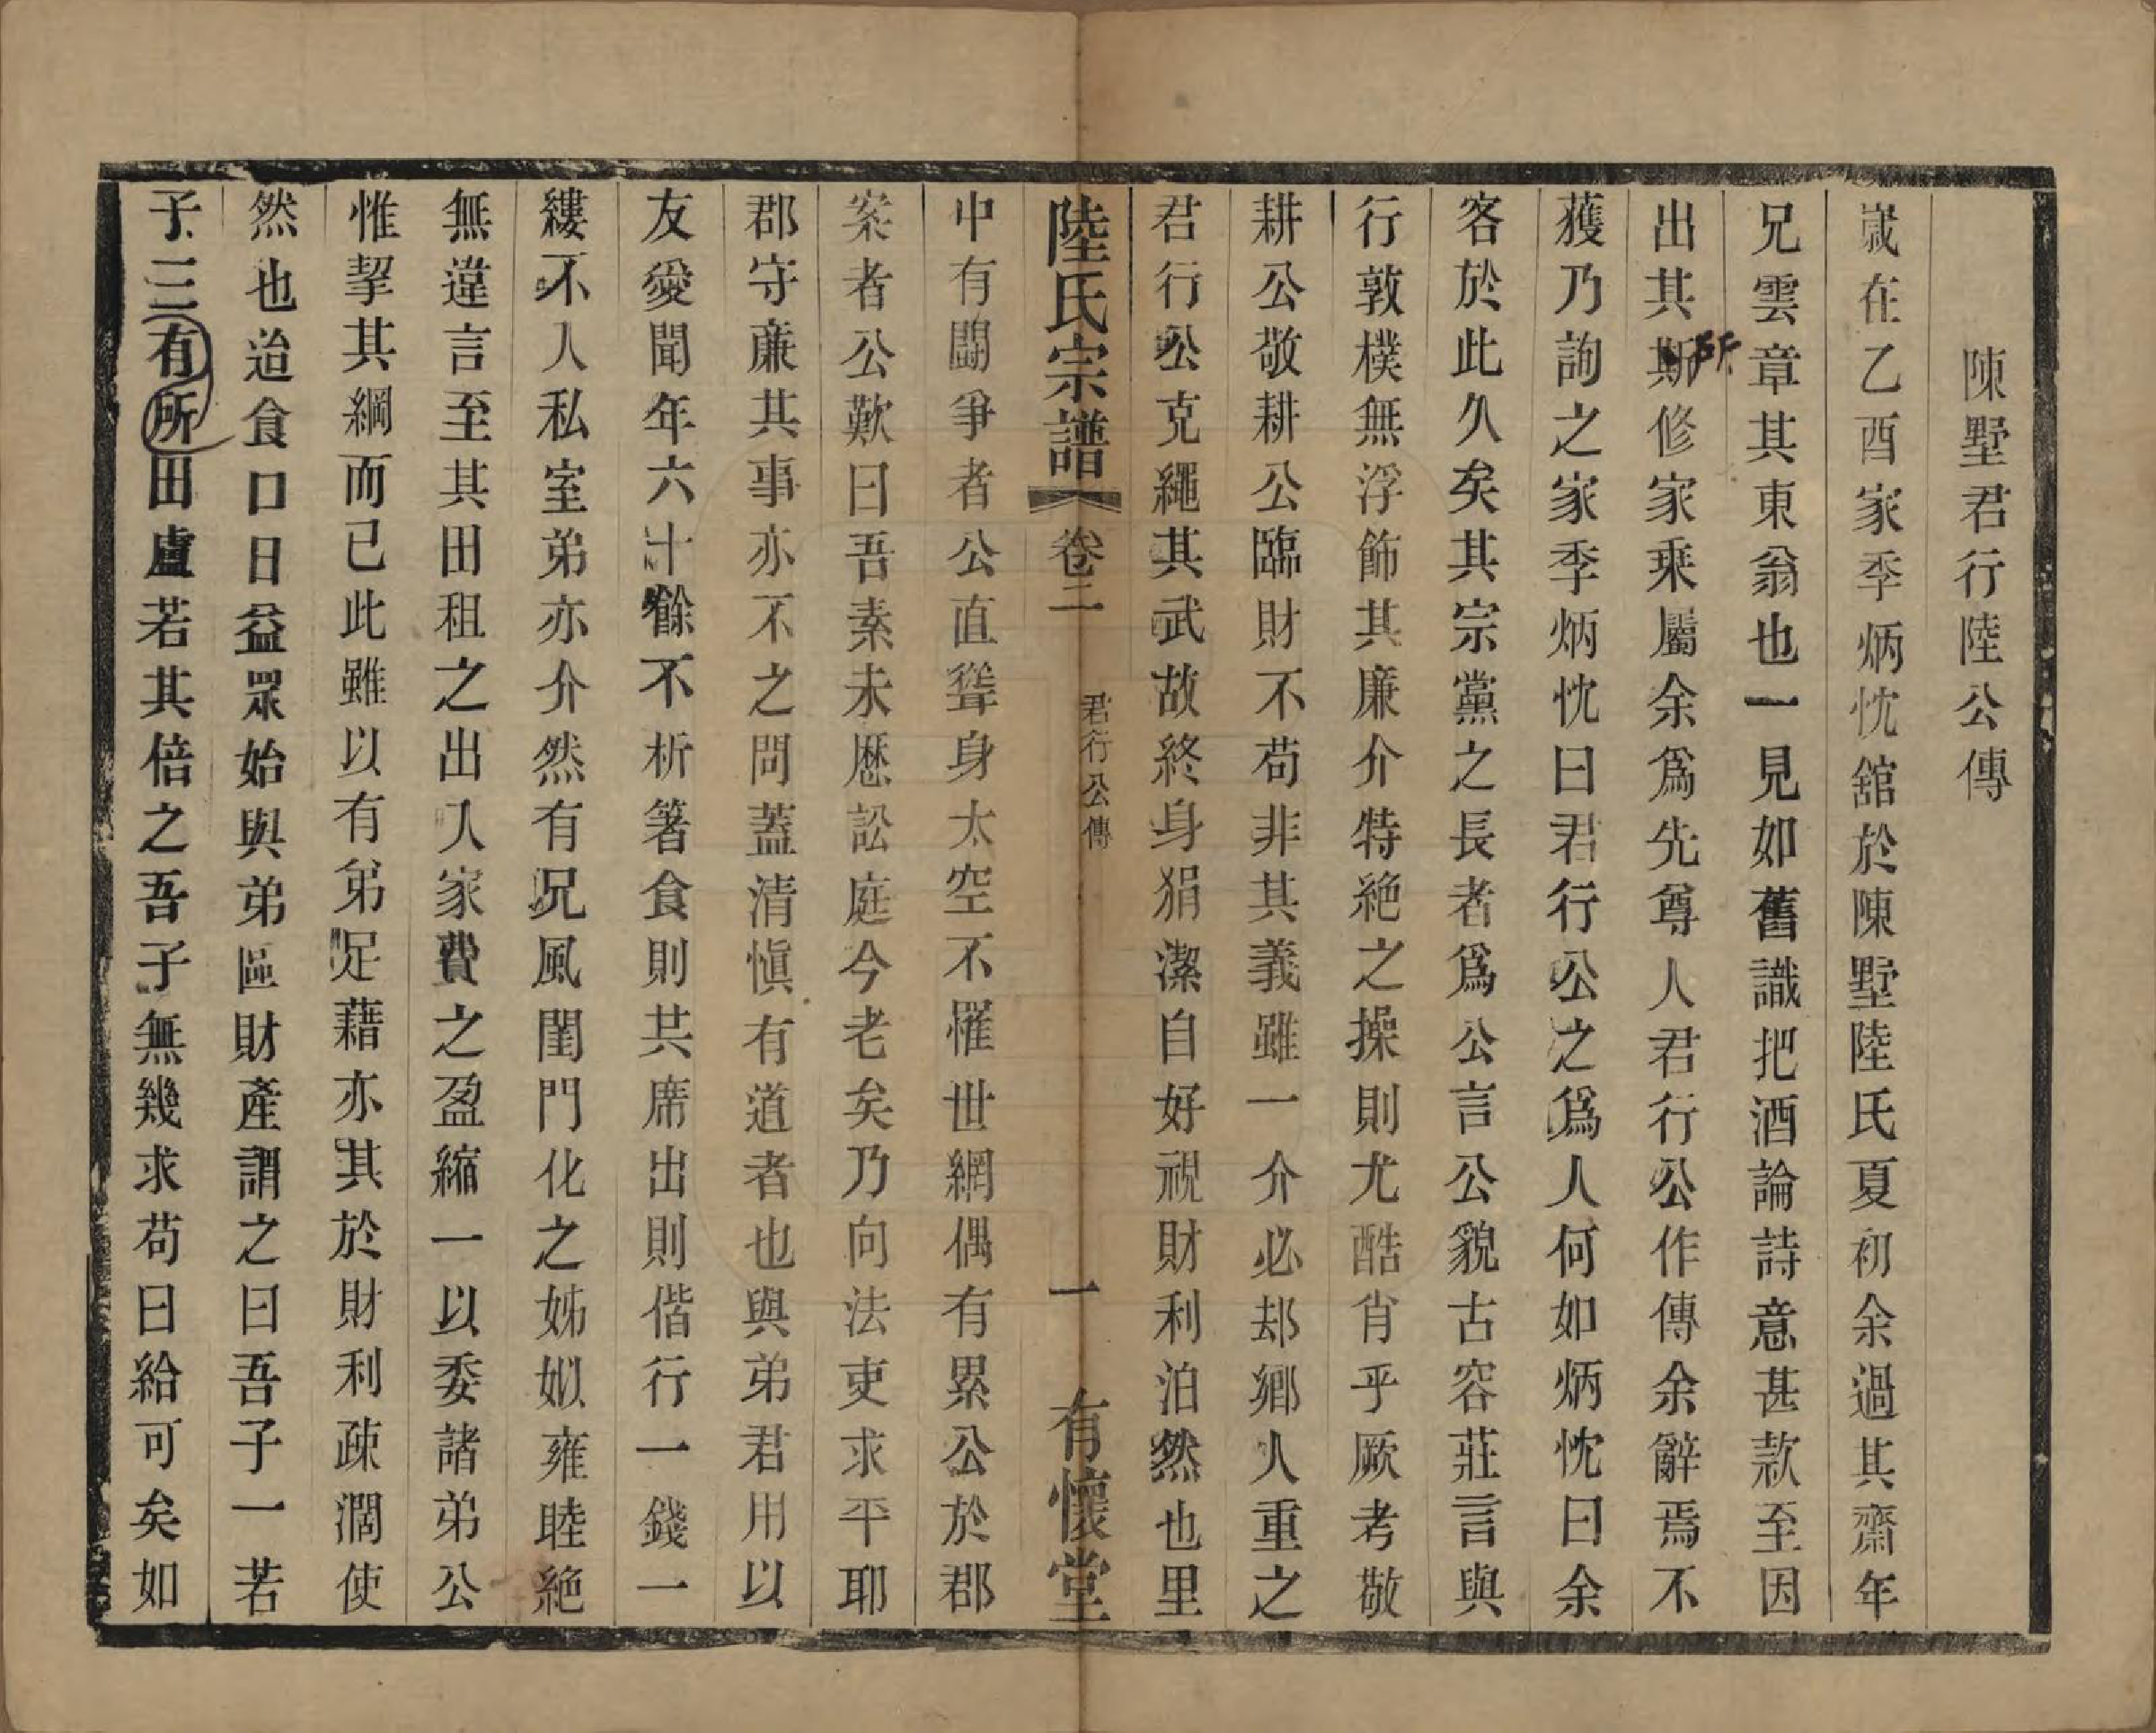 陳墅君行陸公傳
嵗在乙酉家季炳忱舘於陳墅陸氏夏初余過其齋年
兄雲章其東翁也一見如舊識把酒論詩意甚款至因
出其斯所修家乗屬余爲先尊人君行公作傳余辭焉不
獲乃詢之家季炳忱曰君行公之爲人何如炳忱曰余
客於此久矣其宗黨之長者爲公言公貌古容莊言與
行敦樸無浮飾其廉介特絶之操則尤酷肖乎厥考敬
耕公敬耕公臨財不苟非其義雖一介必却鄉人重之
君行公克繩其武故終身狷潔自好視財利泊然也里
陸氏宗譜 卷二 君行公傳 一 有懷堂
中有鬬爭者公直聳身太空不罹世網偶有累公於郡
案者公歎曰吾素未歷訟庭今老矣乃向法吏求平耶
郡守亷其事亦不之問蓋清愼有道者也與弟君用以
友愛聞年六十餘不析箸食則共席出則偕行一錢一
縷不入私室弟亦介然有兄風閨門化之姊姒雍睦絶
無違言至其田租之出入家費之盈縮一以委諸弟公
惟挈其綱而已此雖以有弟足藉亦其於財利疎濶使
然也迨食口日益眾始與弟區財產謂之曰吾子一若
子三有所田盧若其倍之吾子無幾求苟日給可矣如